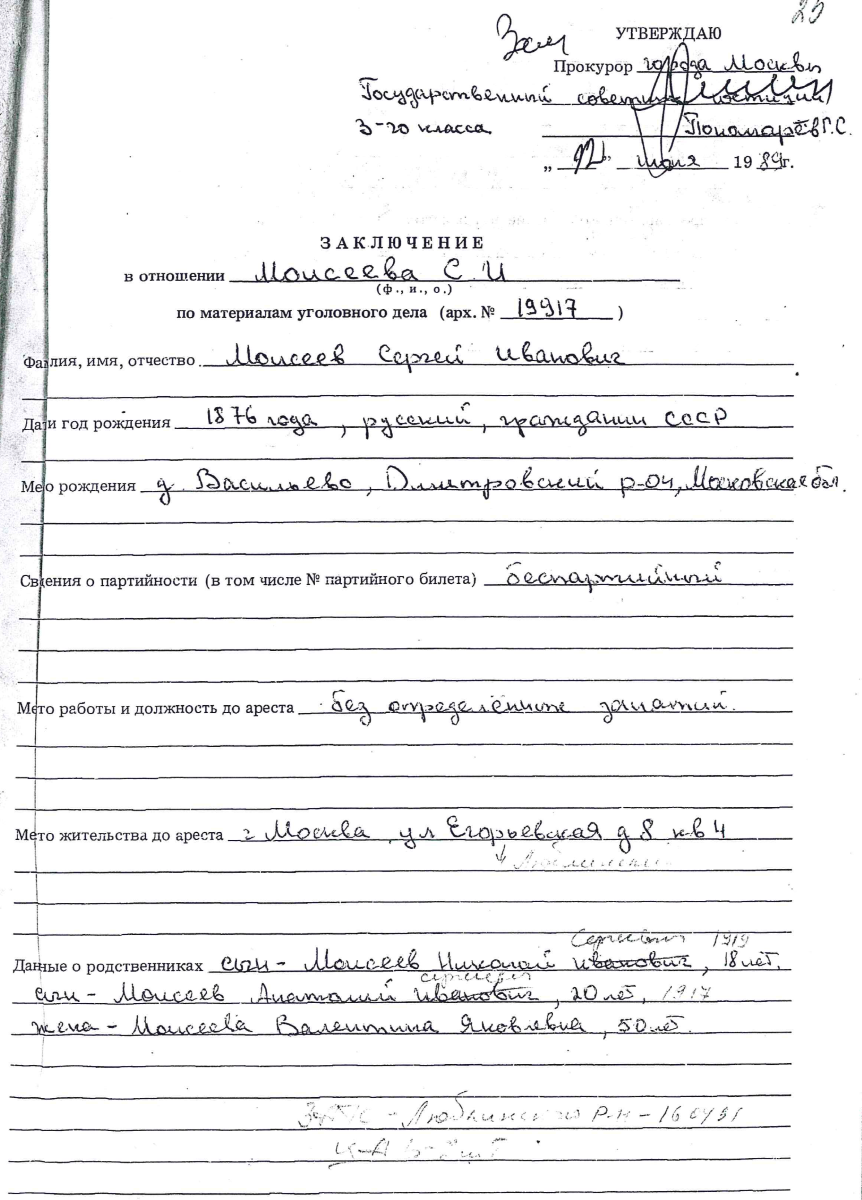 25
УТВЕРЖДАЮ
Зам
Прокурор города Москвы
Государственный советник юстиции
3-го класса Пономарёв Г.С.
„ 12 " июля 1989г.
ЗАКЛЮЧЕНИЕ
в отношении Моисеева С. И
(ф., и., о.)
по материалам уголовного дела (арх. № 19917 )
Фалия, имя, отчество Моисеев Сергей Иванович
Дати год рождения 1876 года, русский, гражданин СССР
Мео рождения д. Васильево, Дмитровский р-он, Московская обл.
Свения о партийности (в том числе № партийного билета) беспартийный
Мето работы и должность до ареста без определённых занятий.
Мето жительства до ареста г Москва ул Егорьевская д 8 кв 4
Сергеевич 1919
Даные о родственниках сын - Моисеев Николай Иванович, 18 лет,
Сергеевич
сын - Моисеев Анатолий Иванович, 20 лет, 1917
жена - Моисеева Валентина Яковлевна, 50 лет.
Люблинского р-н -